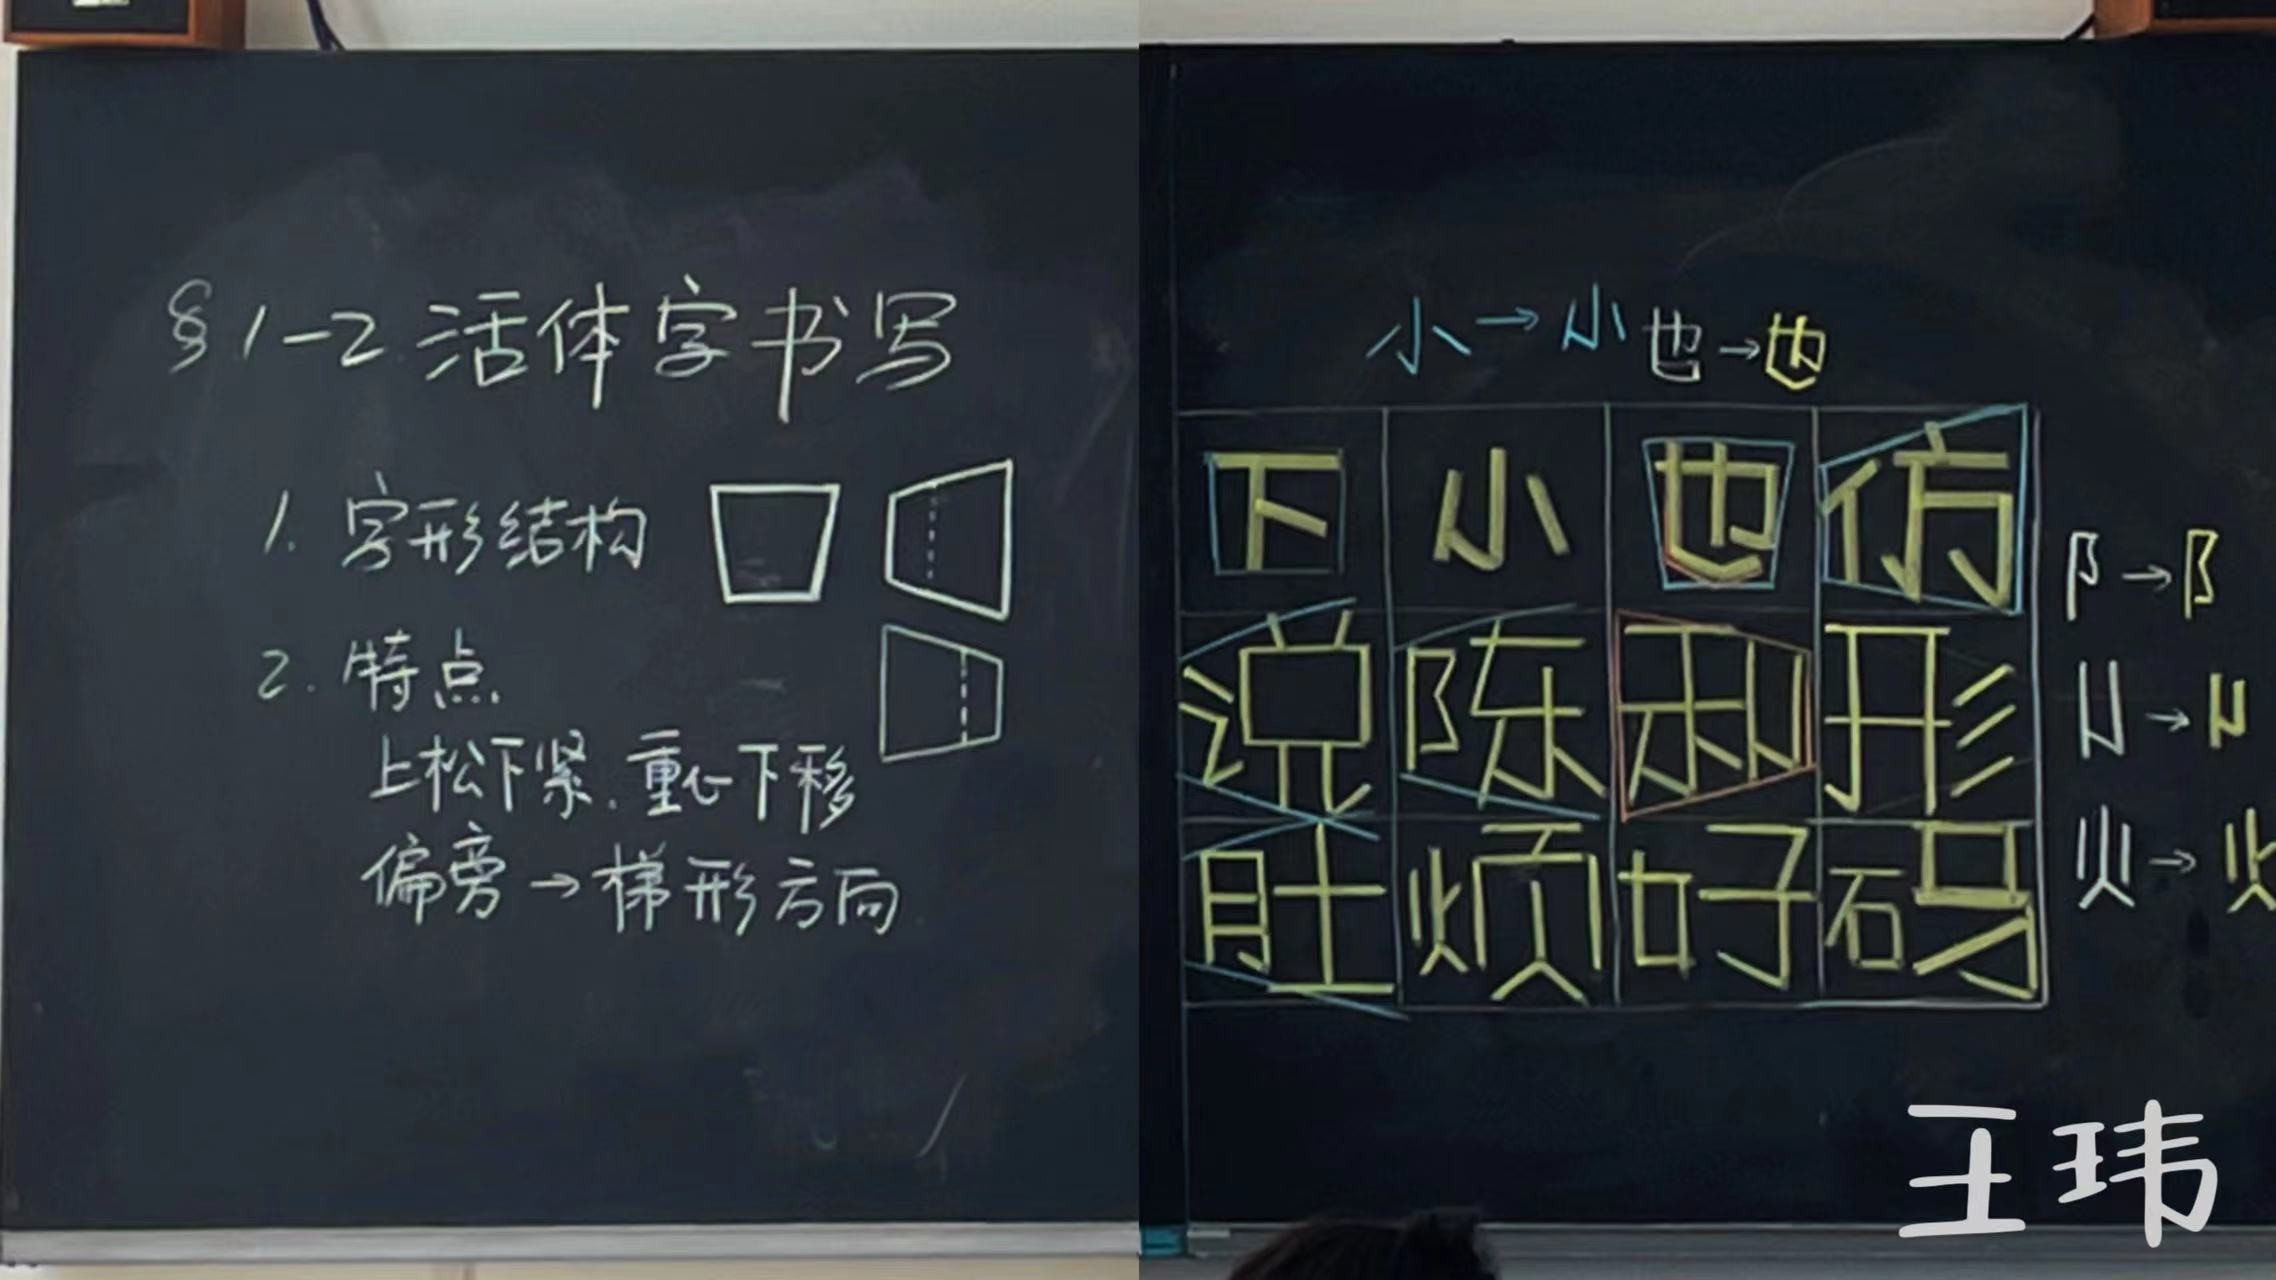 §1-2 活体字书写
1. 字形结构
2. 特点
上松下紧.重心下移
偏旁→梯形方向
小→小 也→也
下 小 也 仿
说 陈 形
肚 烦 好 码
阝→阝
火→火
王玮